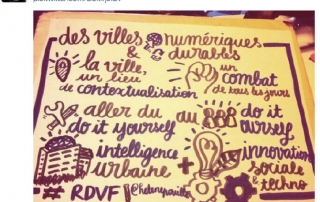 des villes numériques
& durables
la ville,
un lieu
de contextualisation
un
combat
de tous les jours
aller du
do it yourself
au do it
ourself
intelligence
urbaine
+ innovation
sociale
& techno
#RDVF